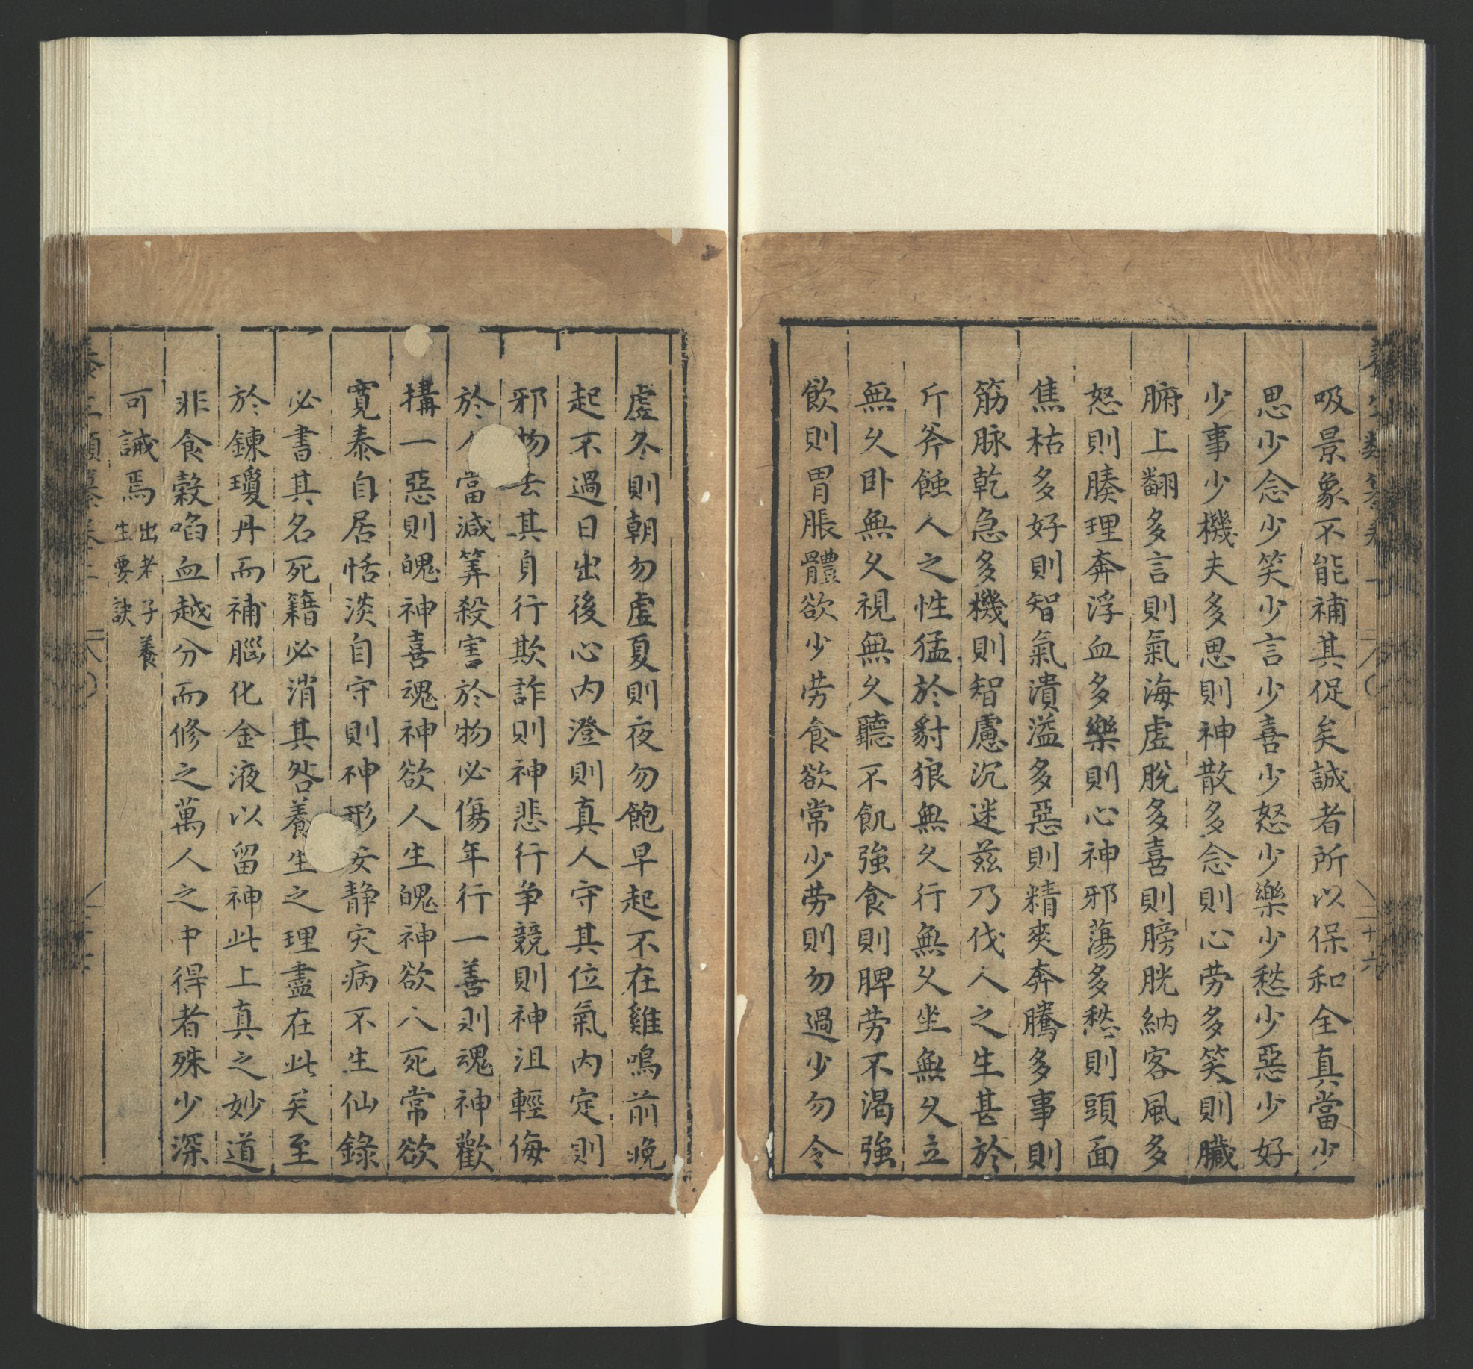 吸景象不能補其促矣誠者所以保和全真當少
思少念少笑少言少喜少怒少樂少愁少惡少好
少事少機夫多思則神散多念則心劳多笑則臟
腑上翻多言則氣海虛脫多喜則膀胱納客風多
怒則腠理奔浮血多樂則心神邪蕩多愁則頭面
焦枯多好則智氣潰溢多惡則精爽奔騰多事則
筋脉乾急多機則智慮沉迷茲乃伐人之生甚於
斤斧蝕人之性猛於豺狼無久行無久坐無久立
無久卧無久視無久聽不飢強食則脾劳不渴強
飲則胃脹體欲少劳食欲常少劳則勿過少勿令
虛冬則朝勿虛夏則夜勿飽早起不在雞鳴前晚
起不過日出後心内澄則真人守其位氣内定則
邪物去其身行欺詐則神悲行争競則神沮輕侮
於人當減筭殺害於物必傷年行一善則魂神歡
搆一惡則魄神喜魂神欲人生魄神欲人死常欲
寛泰自居恬淡自守則神形安静灾病不生仙錄
必書其名死籍必消其咎養生之理盡在此矣至
於錬瓊丹而補腦化金液以留神此上真之妙道
非食穀啗血越分而修之萬人之中得者殊少深
可誡焉出老子養
生要訣